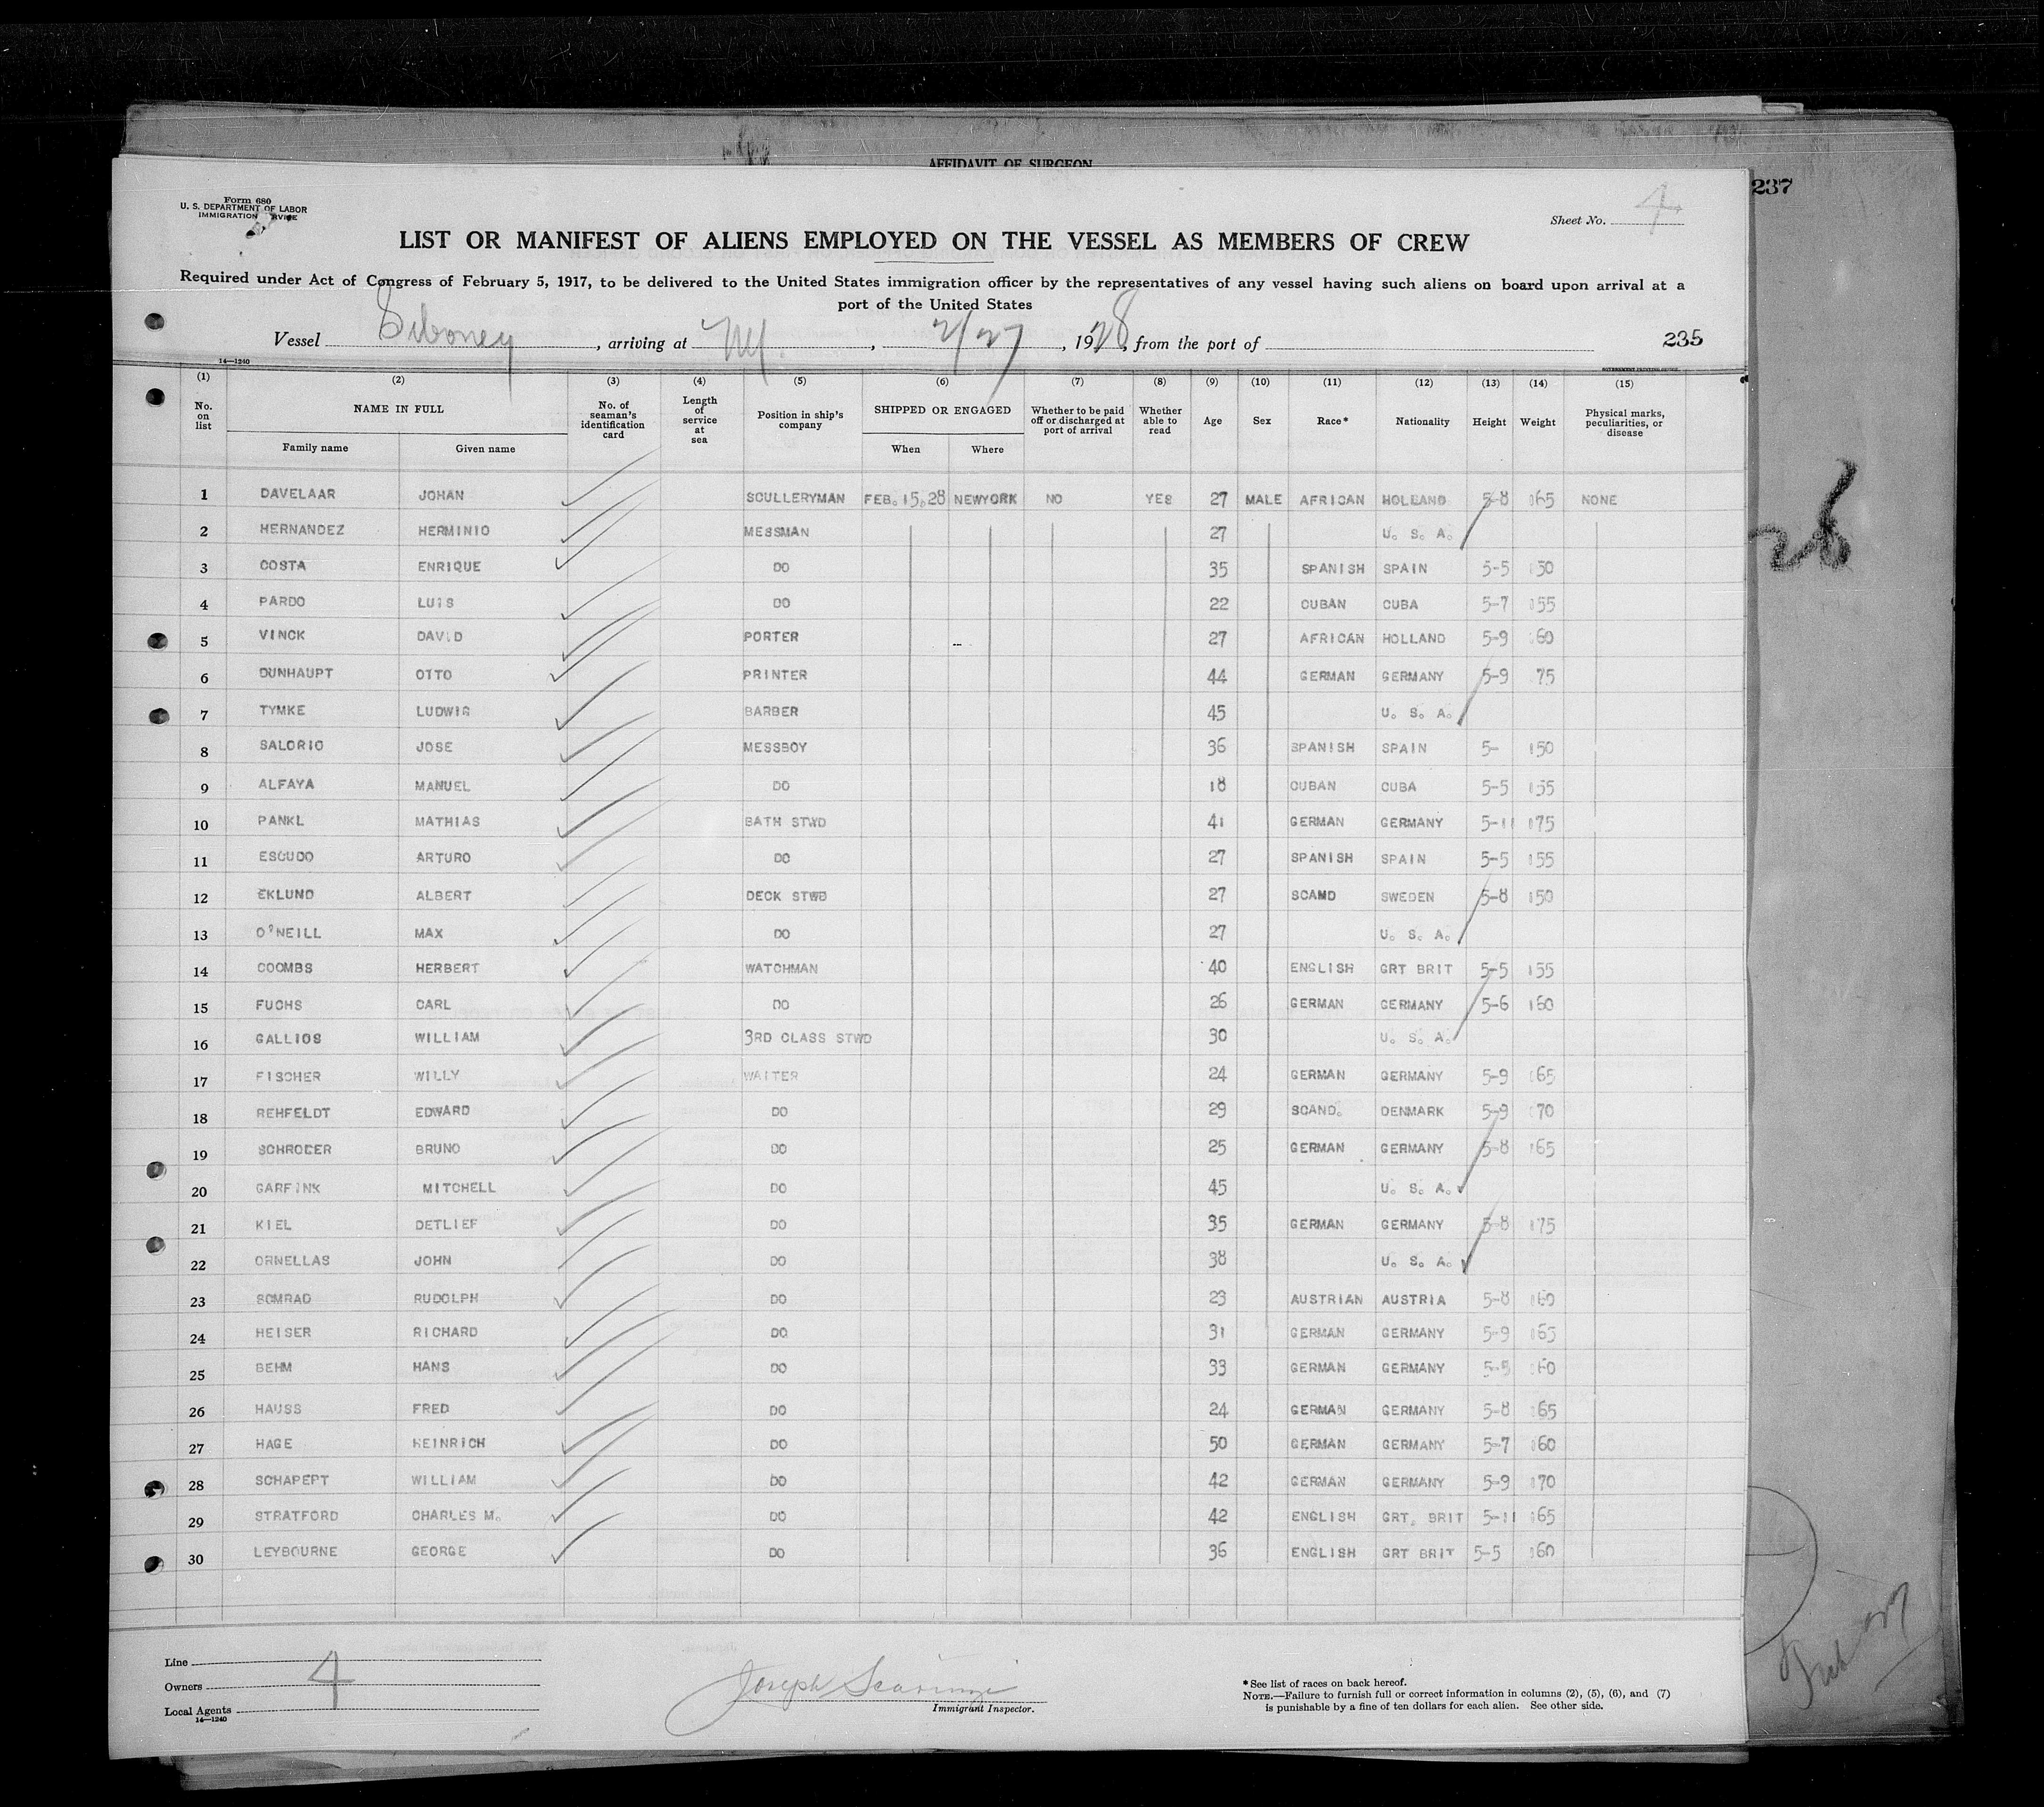 AFFIDAVIT OF SURGEON
237
Form 680
U. S. DEPARTMENT OF LABOR
IMMIGRATION
Sheet No. 4
LIST OR MANIFEST OF ALIENS EMPLOYED ON THE VESSEL AS MEMBERS OF CREW
Required under Act of Congress of February 5, 1917, to be delivered to the United States immigration officer by the representatives of any vessel having such aliens on board upon arrival at a
port of the United States
Vessel Siboney, arriving at NY., 2/27, 1928, from the port of
235
14—1240
GOVERNMENT PRINTING OFFICE
(1) (2) (3) (4) (5) (6) (7) (8) (9) (10) (11) (12) (13) (14) (15)
No. on list NAME IN FULL Family name Given name No. of seaman's identification card Length of service at sea Position in ship's company SHIPPED OR ENGAGED When Where Whether to be paid off or discharged at port of arrival Whether able to read Age Sex Race* Nationality Height Weight Physical marks, peculiarities, or disease
1 DAVELAAR JOHAN SCULLERYMAN FEB. 15.28 NEWYORK NO YES 27 MALE AFRICAN HOLLAND 5-8 165 NONE
2 HERNANDEZ HERMINIO MESSMAN 27 U. S. A.
3 COSTA ENRIQUE DO 35 SPANISH SPAIN 5-5 150
4 PARDO LUIS DO 22 CUBAN CUBA 5-7 155
5 VINCK DAVID PORTER 27 AFRICAN HOLLAND 5-9 160
6 DUNHAUPT OTTO PRINTER 44 GERMAN GERMANY 5-9 175
7 TYMKE LUDWIG BARBER 45 U. S. A.
8 SALORIO JOSE MESSBOY 36 SPANISH SPAIN 5- 150
9 ALFAYA MANUEL DO 18 CUBAN CUBA 5-5 155
10 PANKL MATHIAS BATH STWD 41 GERMAN GERMANY 5-11 175
11 ESCUDO ARTURO DO 27 SPANISH SPAIN 5-5 155
12 EKLUND ALBERT DECK STWD 27 SCAMD SWEDEN 5-8 150
13 O'NEILL MAX DO 27 U. S. A.
14 COOMBS HERBERT WATCHMAN 40 ENGLISH GRT BRIT 5-5 155
15 FUCHS CARL DO 26 GERMAN GERMANY 5-6 160
16 GALLIOS WILLIAM 3RD CLASS STWD 30 U. S. A.
17 FISCHER WILLY WAITER 24 GERMAN GERMANY 5-9 165
18 REHFELDT EDWARD DO 29 SCAND. DENMARK 5-9 170
19 SCHRODER BRUNO DO 25 GERMAN GERMANY 5-8 165
20 GARFINK MITCHELL DO 45 U. S. A.
21 KIEL DETLIEF DO 35 GERMAN GERMANY 5-8 175
22 ORNELLAS JOHN DO 38 U. S. A.
23 SOMRAD RUDOLPH DO 23 AUSTRIAN AUSTRIA 5-8 160
24 HEISER RICHARD DO 31 GERMAN GERMANY 5-9 165
25 BEHM HANS DO 33 GERMAN GERMANY 5-5 160
26 HAUSS FRED DO 24 GERMAN GERMANY 5-8 165
27 HAGE HEINRICH DO 50 GERMAN GERMANY 5-7 160
28 SCHAPEPT WILLIAM DO 42 GERMAN GERMANY 5-9 170
29 STRATFORD CHARLES M. DO 42 ENGLISH GRT. BRIT 5-11 165
30 LEYBOURNE GEORGE DO 36 ENGLISH GRT BRIT 5-5 160
Line
Owners 4
Local Agents
14—1240
Joseph Scaringi
Immigrant Inspector.
*See list of races on back hereof.
NOTE.—Failure to furnish full or correct information in columns (2), (5), (6), and (7)
is punishable by a fine of ten dollars for each alien. See other side.